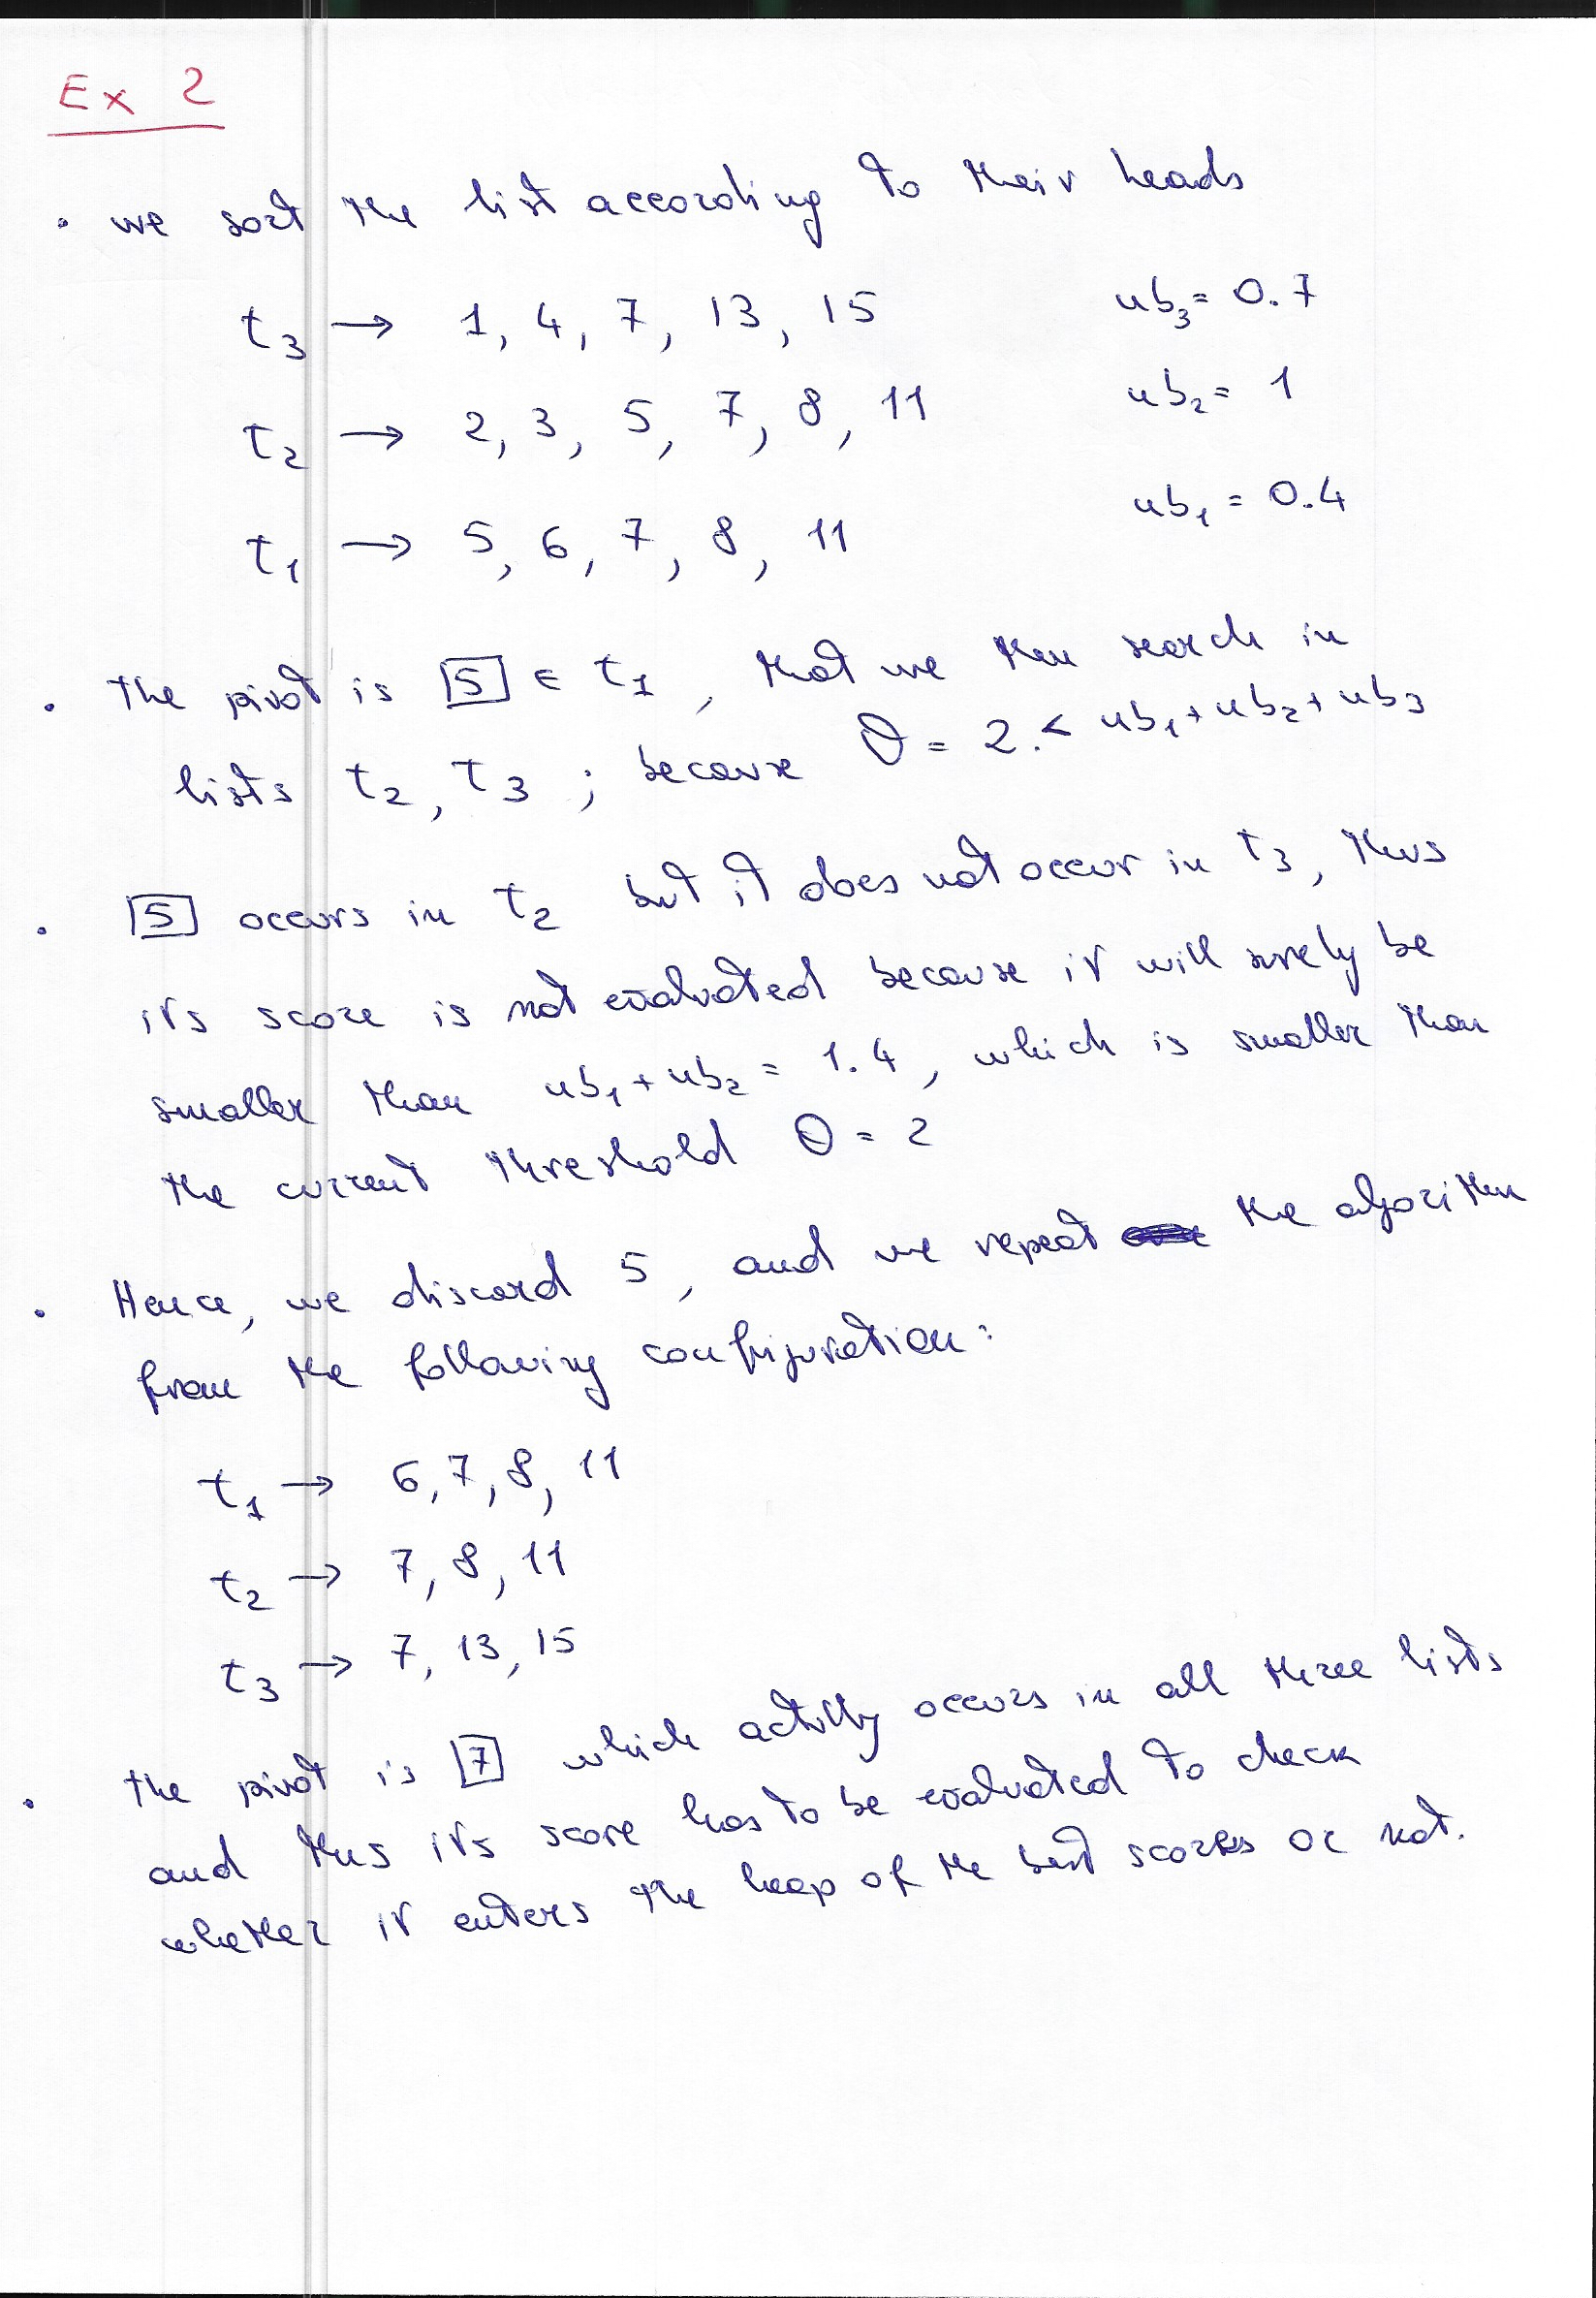 Ex 2
• we sort the list according to their heads
t3 → 1, 4, 7, 13, 15 ub3 = 0.7
t2 → 2, 3, 5, 7, 8, 11 ub2 = 1
t1 → 5, 6, 7, 8, 11 ub1 = 0.4
• The pivot is 5 ∈ t1, that we then search in
lists t2, t3 ; because θ = 2 < ub1 + ub2 + ub3
• 5 occurs in t2 but it does not occur in t3, thus
its score is not evaluated because it will surely be
smaller than ub1 + ub2 = 1.4, which is smaller than
the current threshold θ = 2
• Hence, we discard 5, and we repeat the algorithm
from the following configuration:
t1 → 6, 7, 8, 11
t2 → 7, 8, 11
t3 → 7, 13, 15
• the pivot is 7 which actlly occurs in all three lists
and thus its score has to be evaluated to check
whether it enters the heap of the best scores or not.